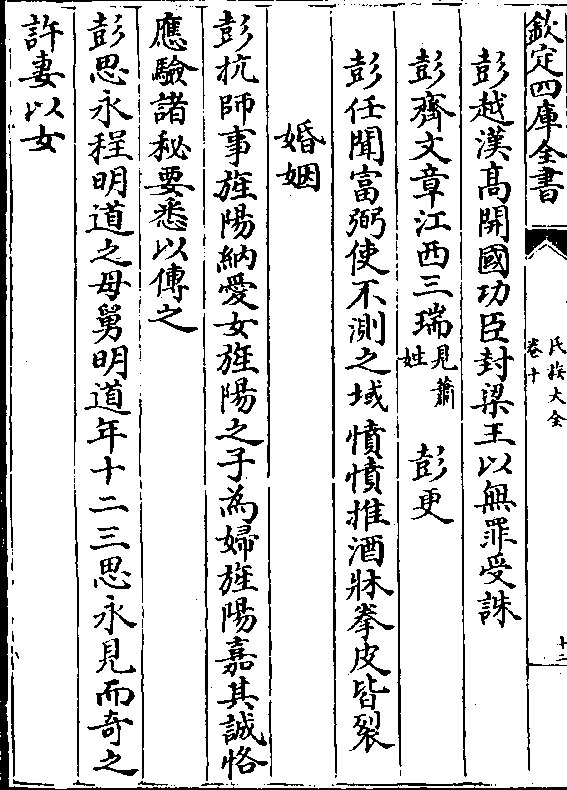 欽定四庫全書
氏族大全
卷十
十二
彭越漢髙開國功臣封梁王以無罪受誅
彭齊文章江西三瑞見蕭姓 彭更
彭任聞富弼使不測之域憤憤推酒牀拳皮皆裂
婚姻
彭抗師事旌陽納愛女旌陽之子為婦旌陽嘉其誠恪
應驗諸秘要悉以傳之
彭思永程明道之母舅明道年十二三思永見而奇之
許妻以女